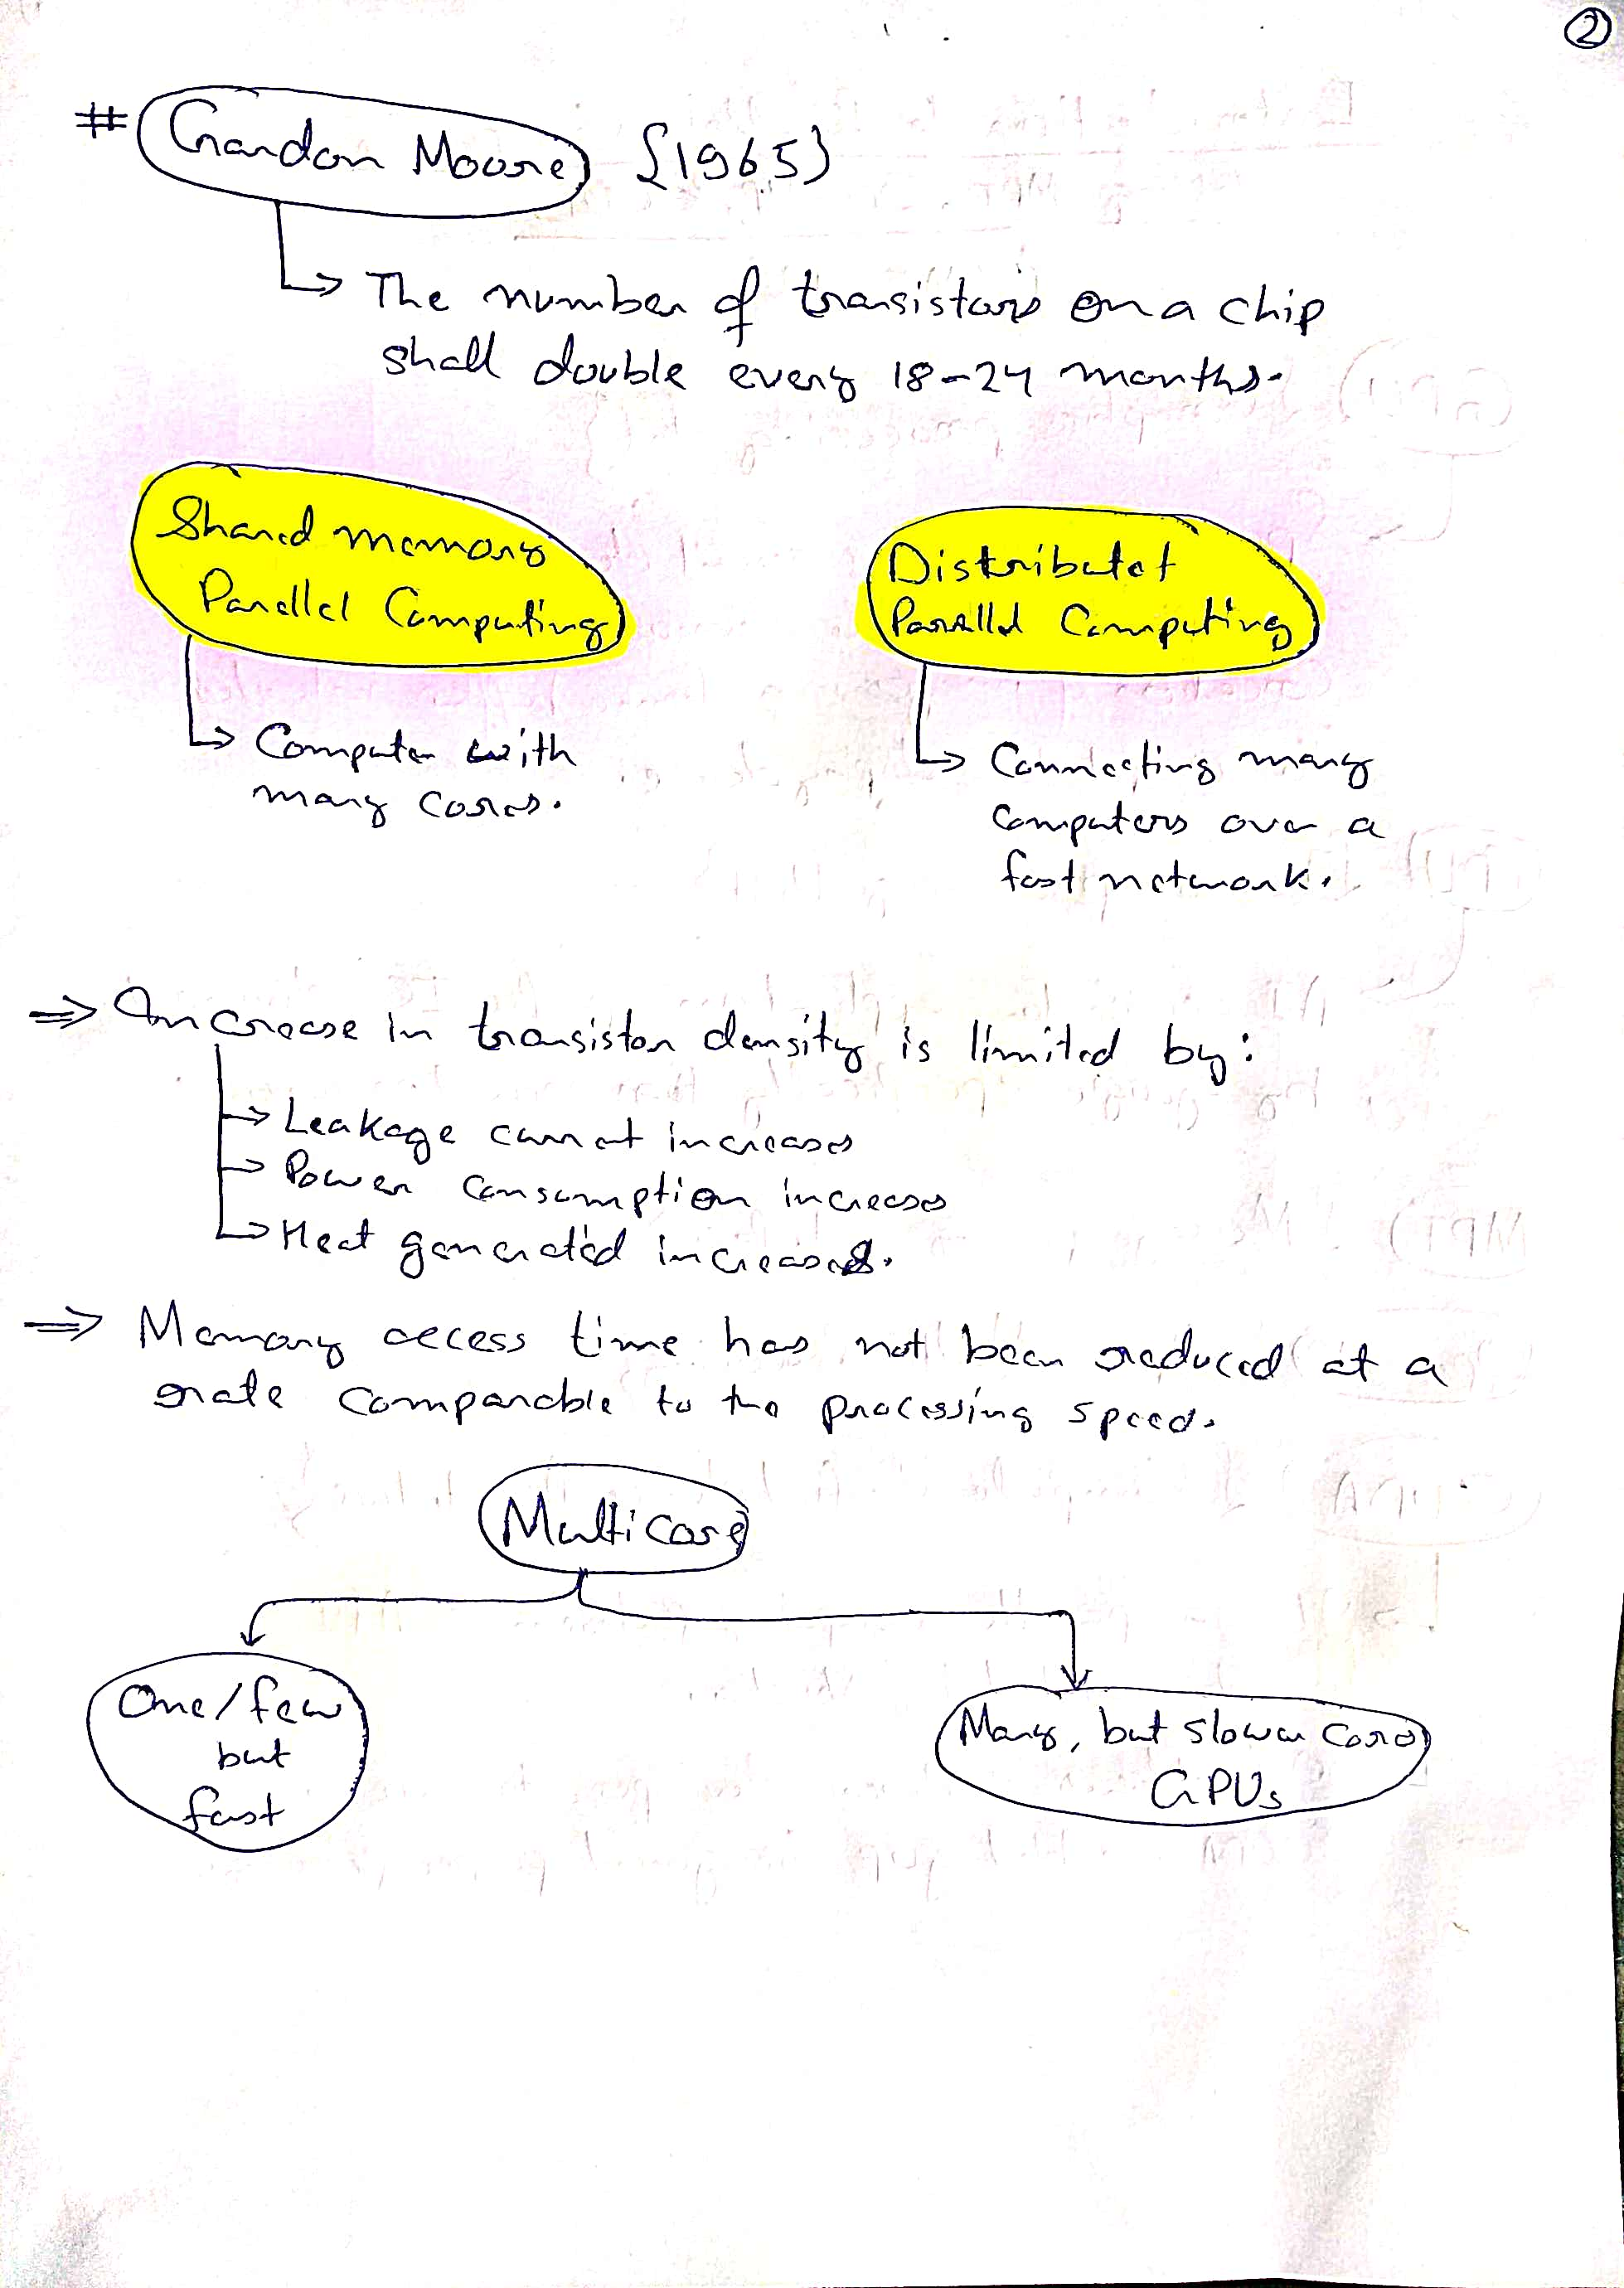 2
# Gordon Moore {1965}
The number of transistors on a chip
shall double every 18-24 months.
Shared memory
Parallel Computing
Distributet
Parallel Computing
Computer with
many cores.
Connecting many
computers over a
fast network.
⇒ Increase in transistor density is limited by:
Leakage current increases
Power consumption increases
Heat generated increases.
⇒ Memory access time has not been reduced at a
rate comparable to the processing speed.
Multicore
One/few
but
fast
Many, but slower cores
GPUs